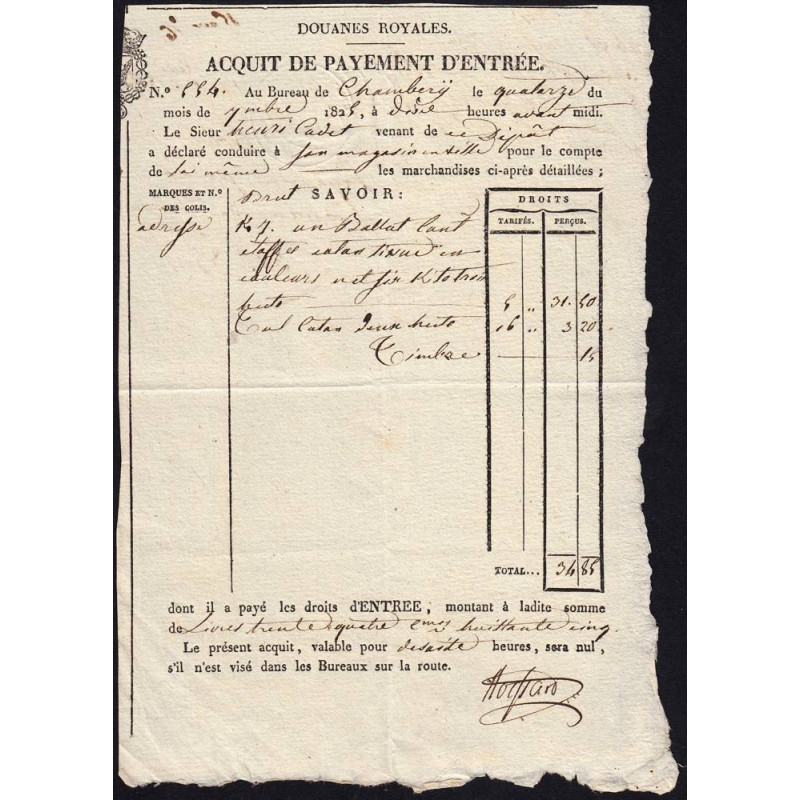 DOUANES ROYALES.
ACQUIT DE PAYEMENT D'ENTRÉE.
N.º 554. Au Bureau de Chambery le quatorze du
mois de 9mbre 1825, à dix heures avant midi.
Le Sieur henri Cadet venant de ce Dépôt
a déclaré conduire à son magasin en ville pour le compte
de lui même les marchandises ci-après détaillées ;
MARQUES ET N.º DES COLIS.
SAVOIR :
DROITS
TARIFÉS. PERÇUS.
adresse
Brut
K 7. un Ballot cont
étoffes coton tissue en
couleurs net six K to trois
hecto 5 „ 31. 50
Tul Coton deux hecto 16 „ 3 20
Timbre 15
TOTAL... 34 85
dont il a payé les droits d'ENTREE, montant à ladite somme
de Livres trente quatre cmes huittante cinq
Le présent acquit, valable pour heures, sera nul,
s'il n'est visé dans les Bureaux sur la route.